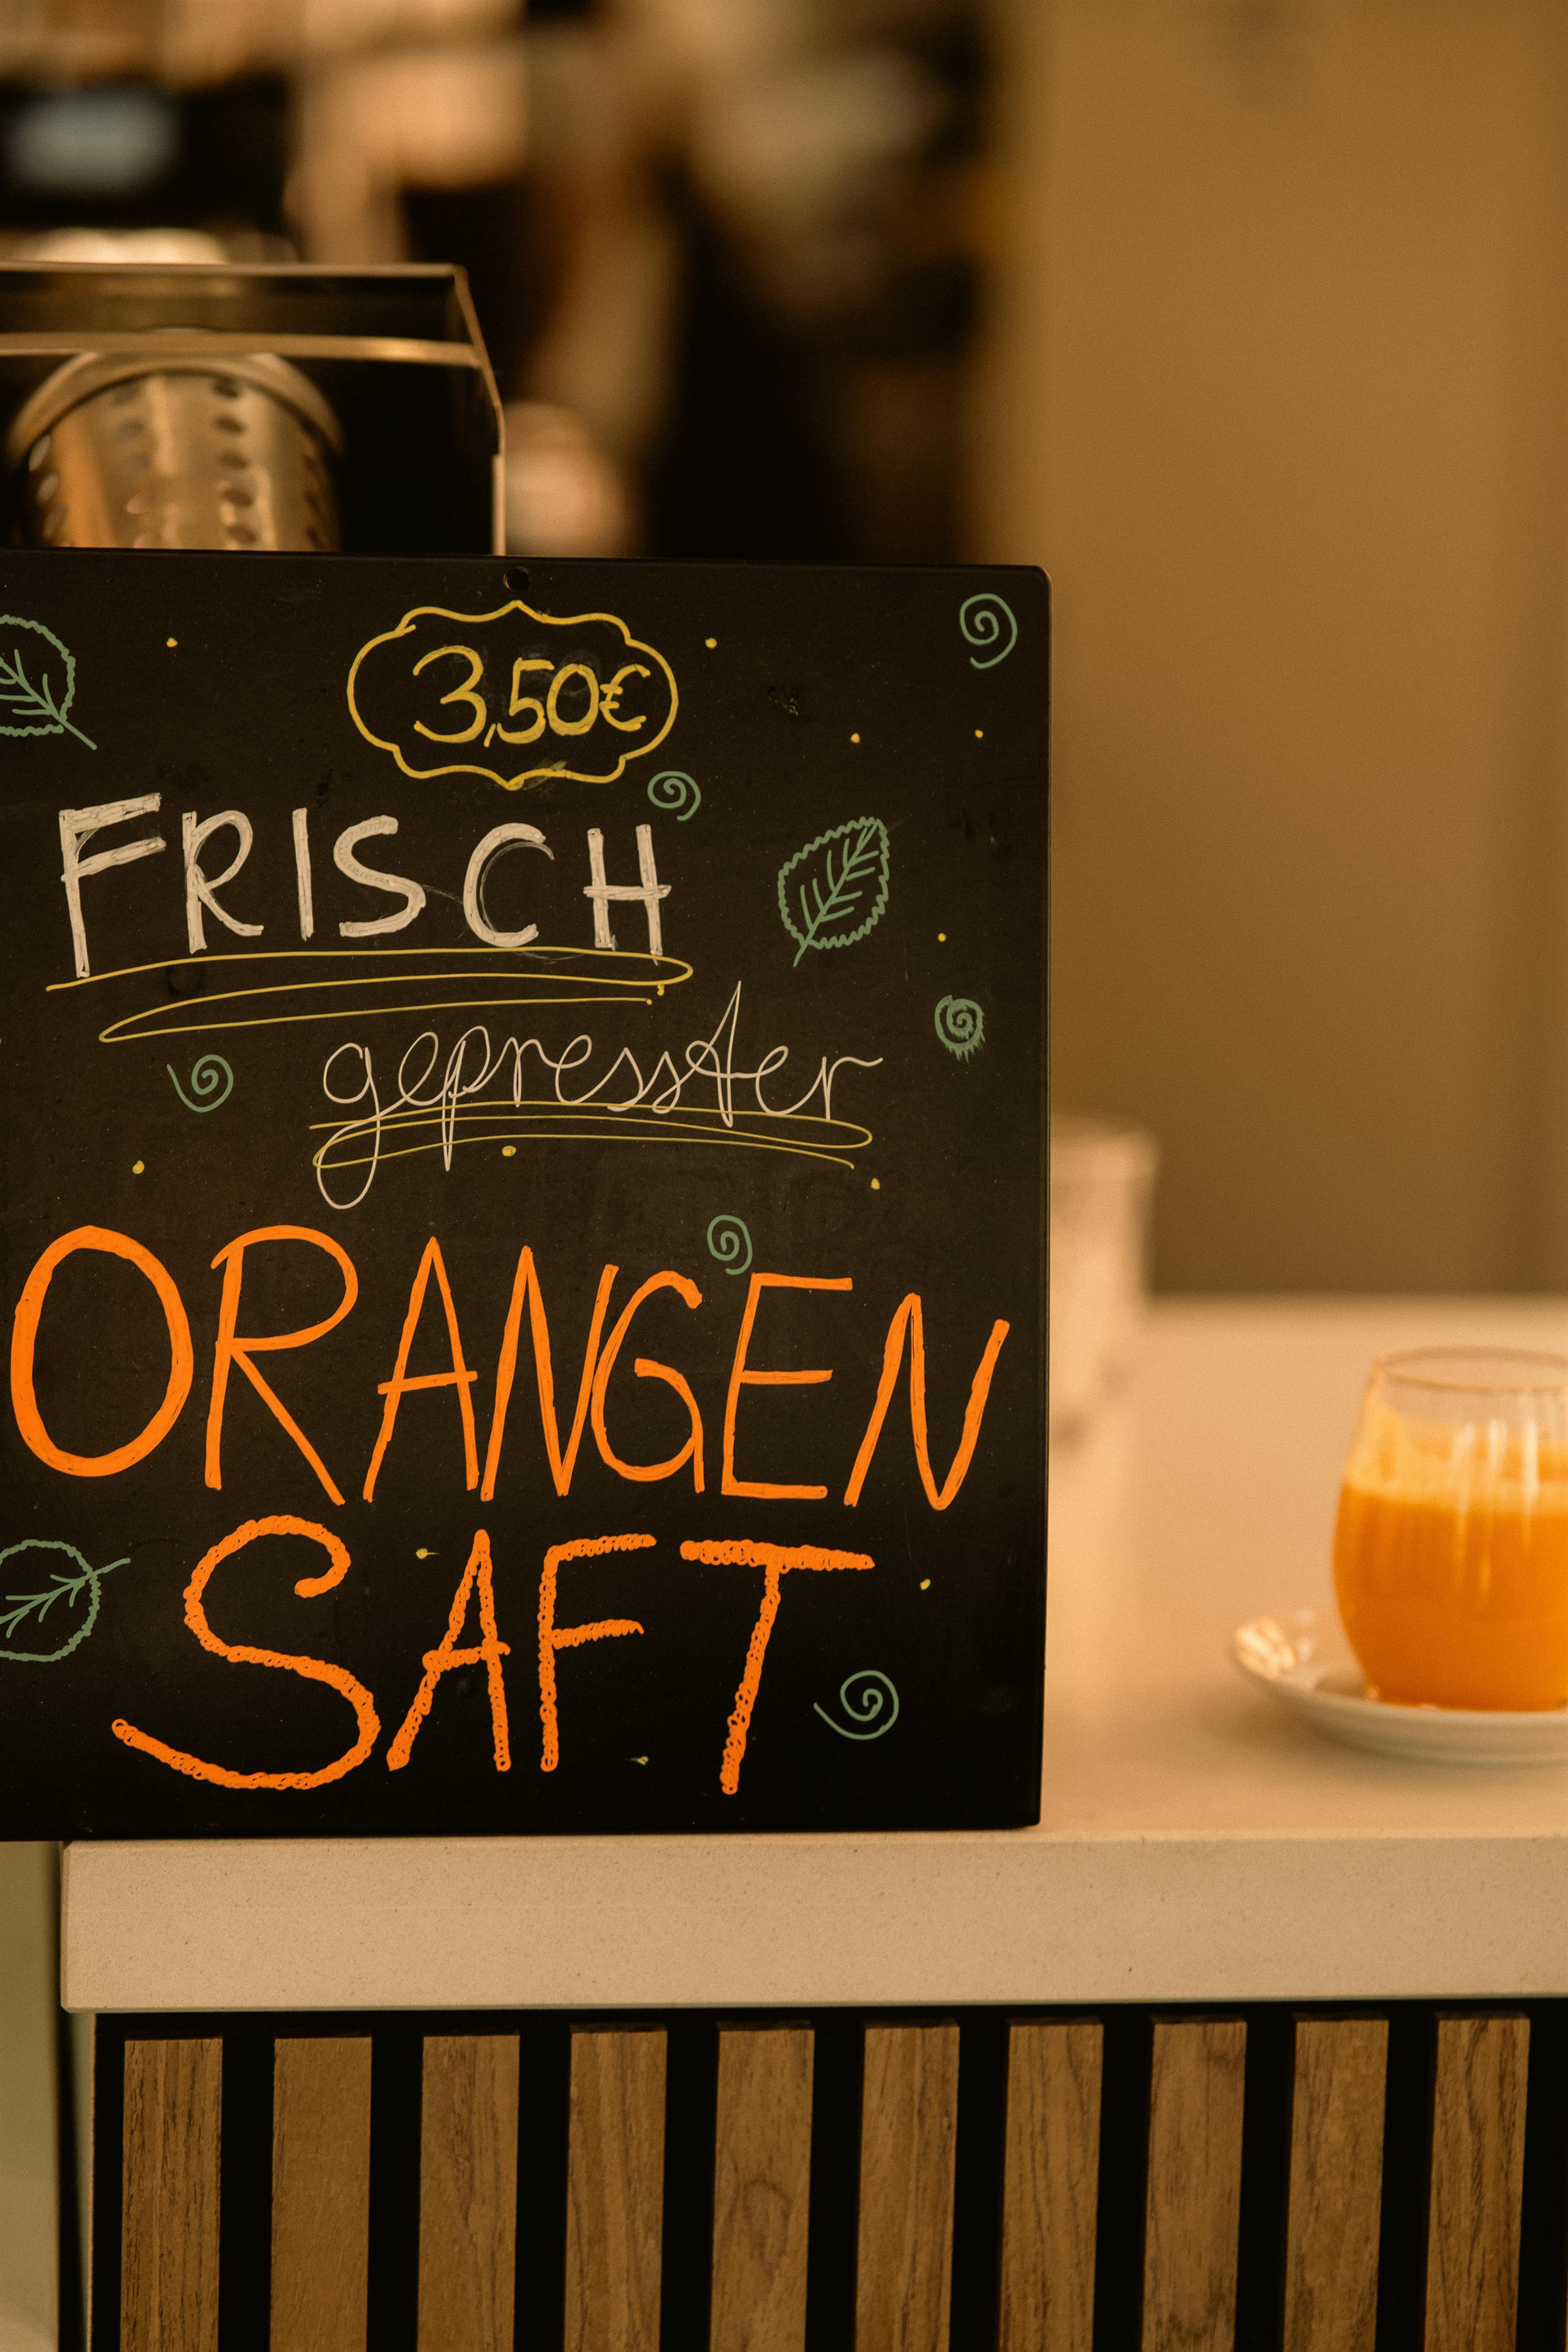 3,50€
FRISCH
gepresster
ORANGEN
SAFT